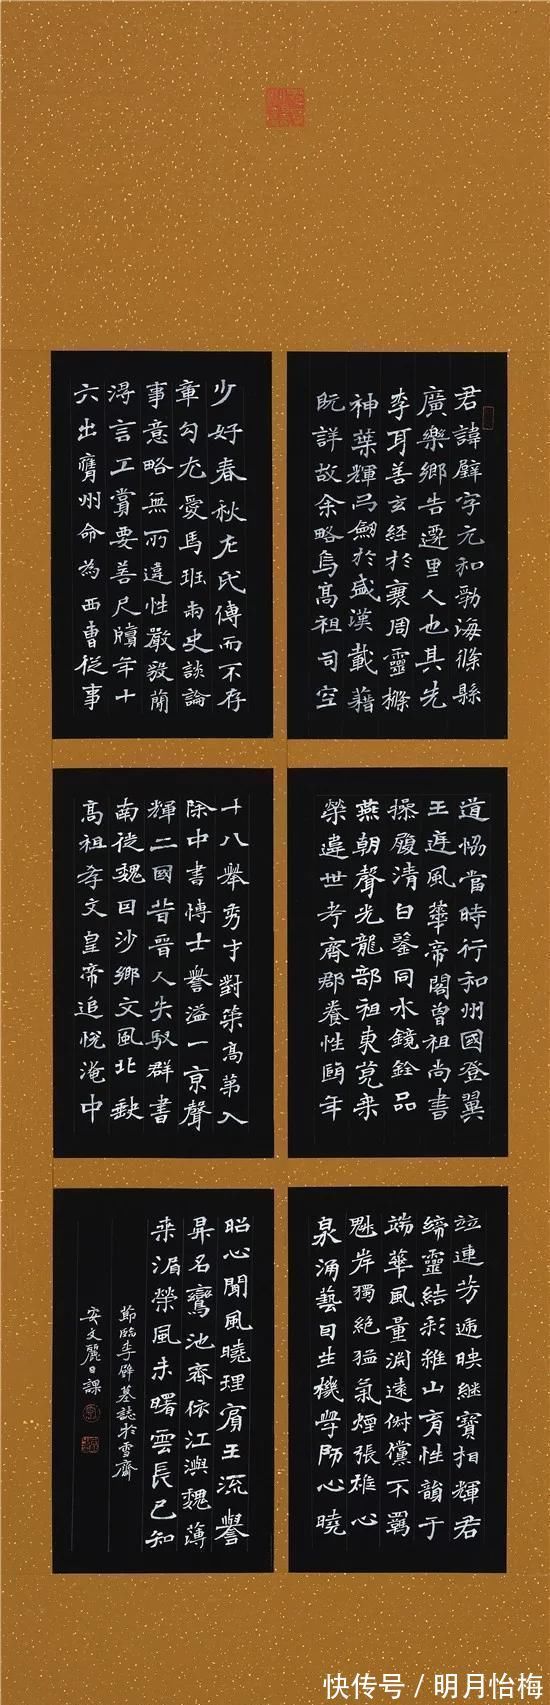 君諱璧字元和勃海條縣
廣樂鄉吉遷里人也其先
李耳善玄經於衰周靈櫬
神葉輝弓劍於盛漢載藉
既詳故余略焉高祖司空
道協當時行和州國登翼
王庭風華帝閣曾祖尚書
操履清白鑒同水鏡銓品
燕朝聲光龍部祖東莞来
榮違世考齊郡養性頤年
竝連芳遞映繼寶相輝君
締靈結彩維山育性韻宇
端華風量淵遠俶儻不羈
魁岸獨絕猛氣煙張雄心
泉涌藝因生機學師心曉
少好春秋左氏傳而不存
章句尤愛馬班兩史談論
事意略無所違性嚴毅簡
得言工賞要善尺牘年十
六出膺州命為西曹從事
十八舉秀才對策高第入
除中書博士譽溢一京聲
輝二國昔晉人失馭群書
南徙魏因沙鄉文風北缺
高祖孝文皇帝追悅淹中
昭心聞風曉理賓王流譽
昇名鸞池齊依江澳魏薄
来湄榮風未曙雲長已知
節臨李璧墓誌於雪齋
安文麗日課
快传号/明月怡梅